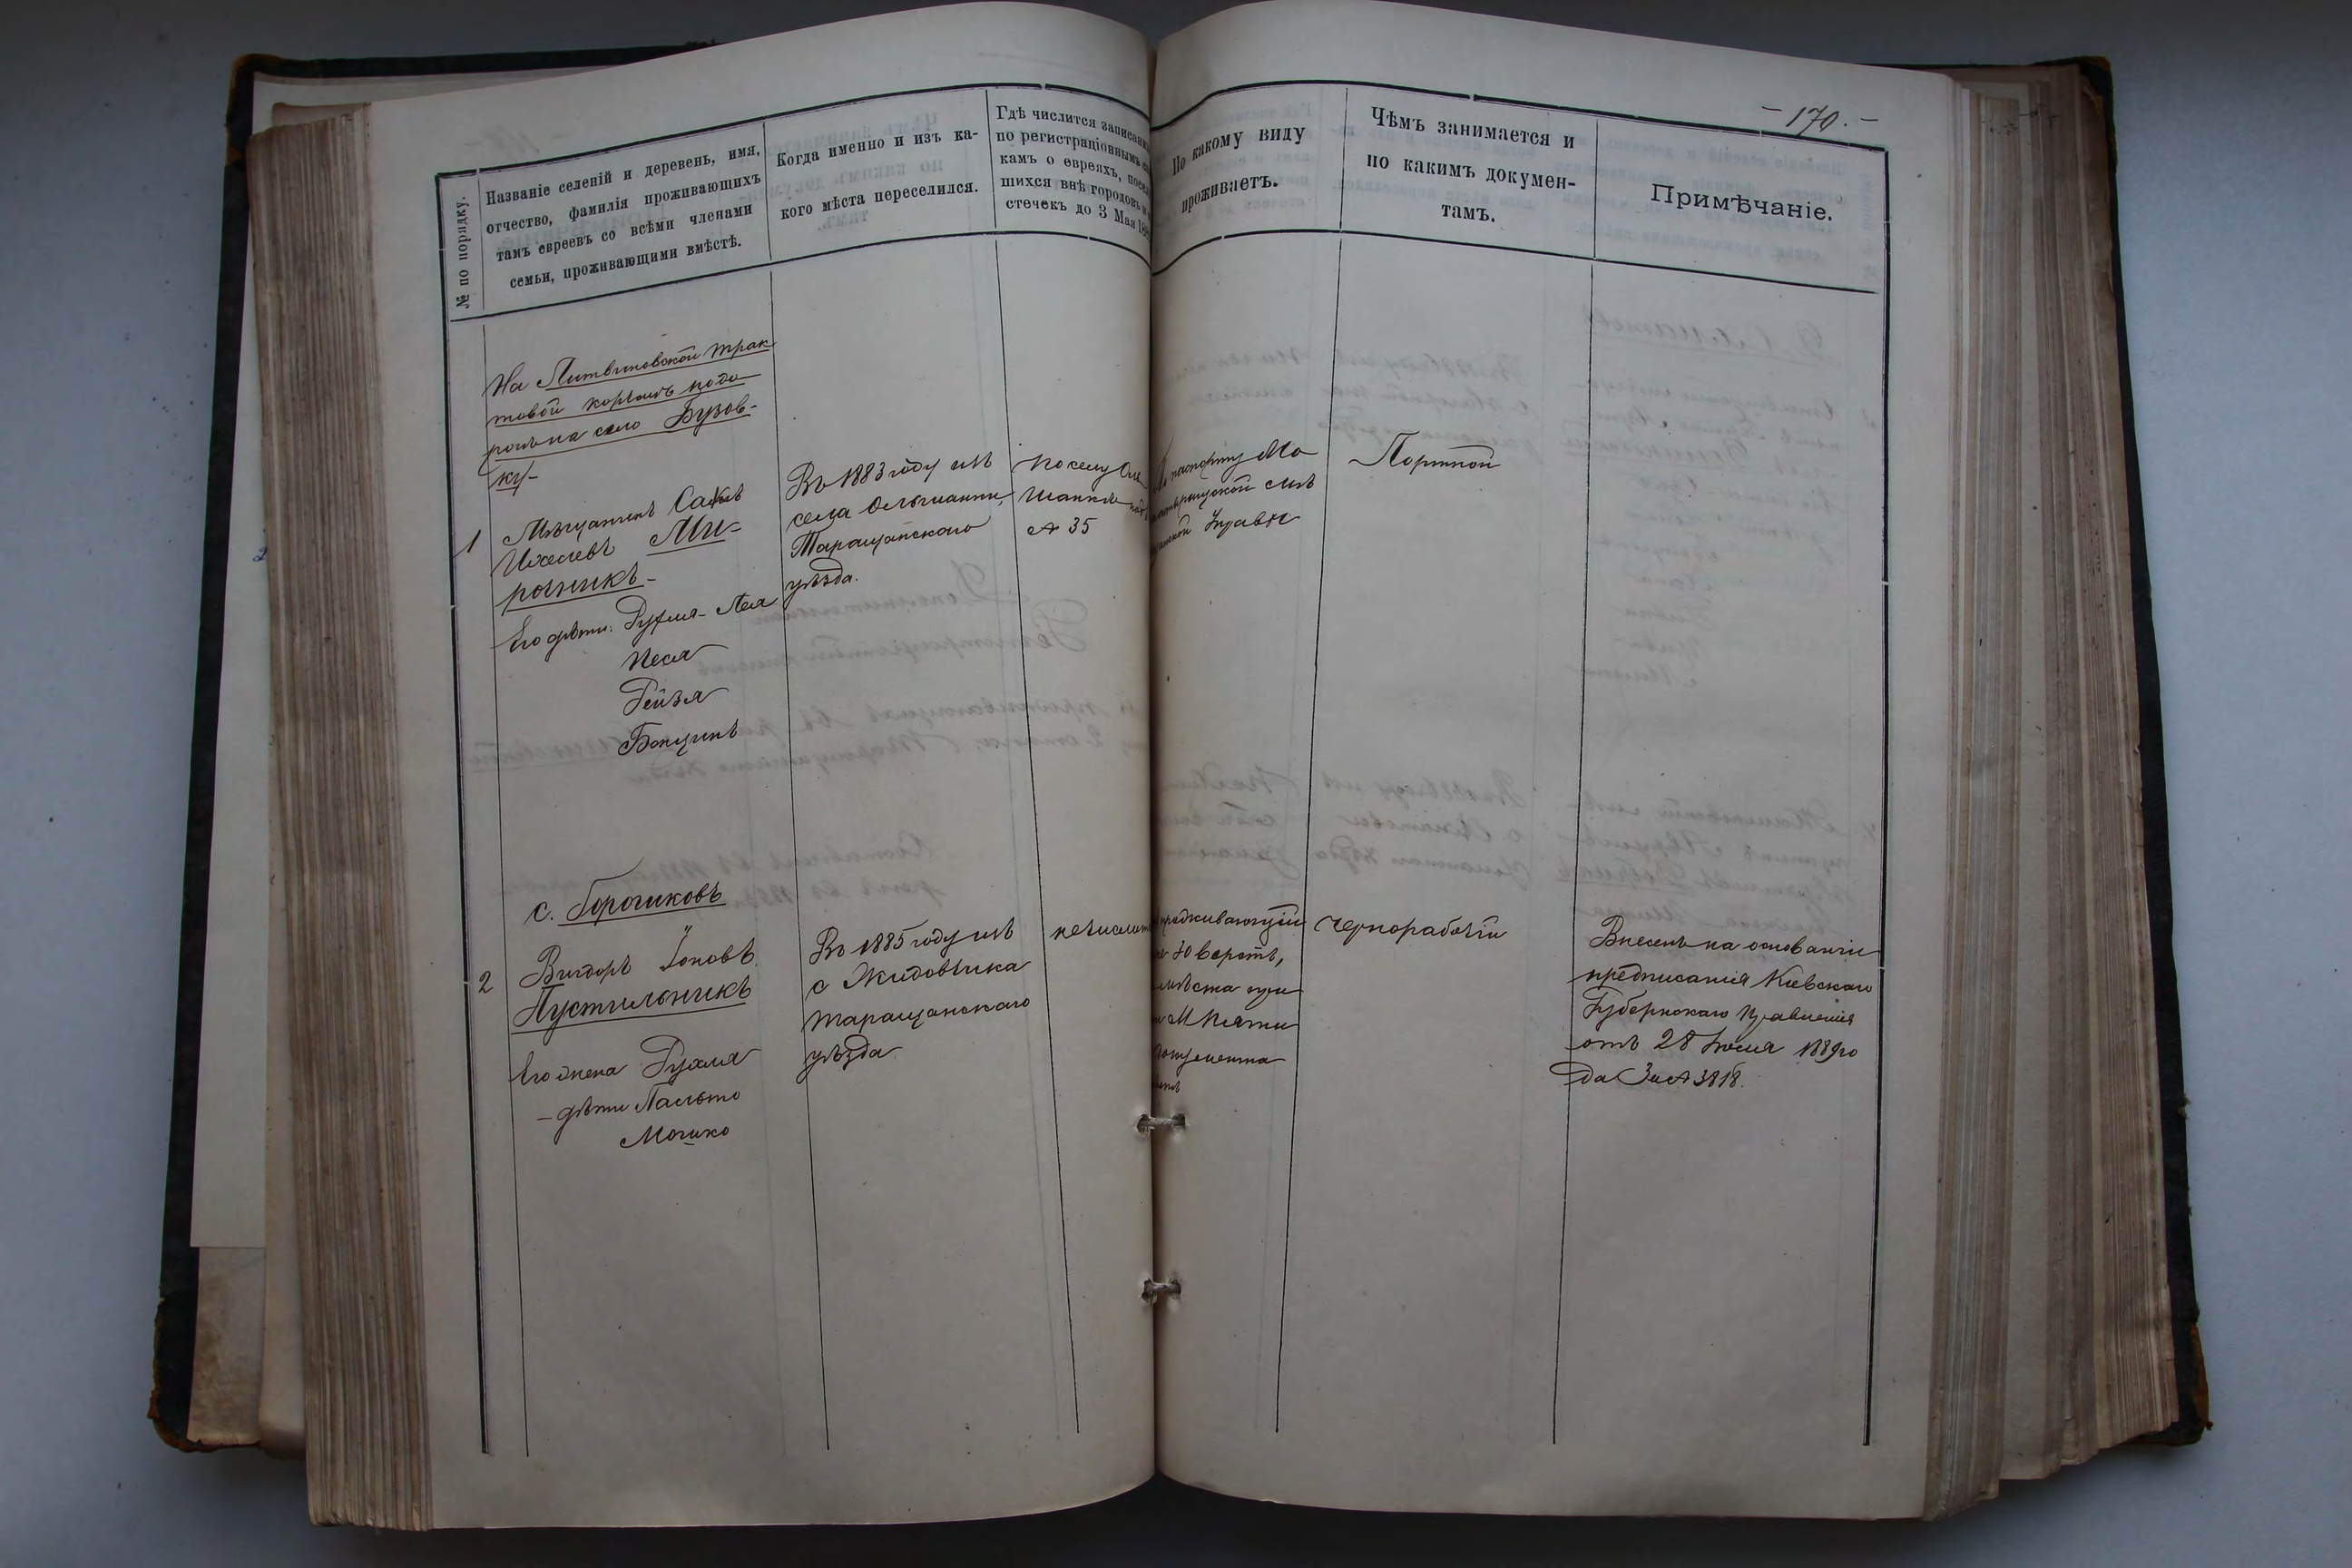 - 170. -
№ по порядку.
Названіе селеній и деревень, имя,
отчество, фамилія проживающихъ
тамъ евреевъ со всѣми членами
семьи, проживающими вмѣстѣ.
Когда именно и изъ ка-
кого мѣста переселился.
Гдѣ числится записан
по регистраціоннымъ
камъ о евреяхъ, посе
шихся внѣ городовъ и
стечекъ до 3 Мая 18
По какому виду
проживаетъ.
Чѣмъ занимается и
по какимъ докумен-
тамъ.
Примѣчаніе.
На Литвиновской трак
товой корчмѣ подо
на село Бузов-
ку-
1
Мѣщанинъ
Ми-
рочникъ-
Его дѣти: Рухля-Лея
Песя
Рейзя
Бенціонъ
Въ 1883 году изъ
села Ольшанки,
Таращанскаго
уѣзда.
По селу Оль
шанкѣ под
№ 35
паспорту
Управы
Портной
с. Горошковъ
2
Вигдоръ Іоновъ
Пустильникъ
Его жена Рухля
- дѣти Пальто
Мошко
Въ 1885 году изъ
с Жидовчика
таращанскаго
уѣзда
не числит
проживающій
верстъ,
документа
Чернорабочій
Внесенъ на основаніи
предписанія Кіевскаго
Губернскаго Правленія
отъ 28 Іюля 1889 го
да За № 3818.